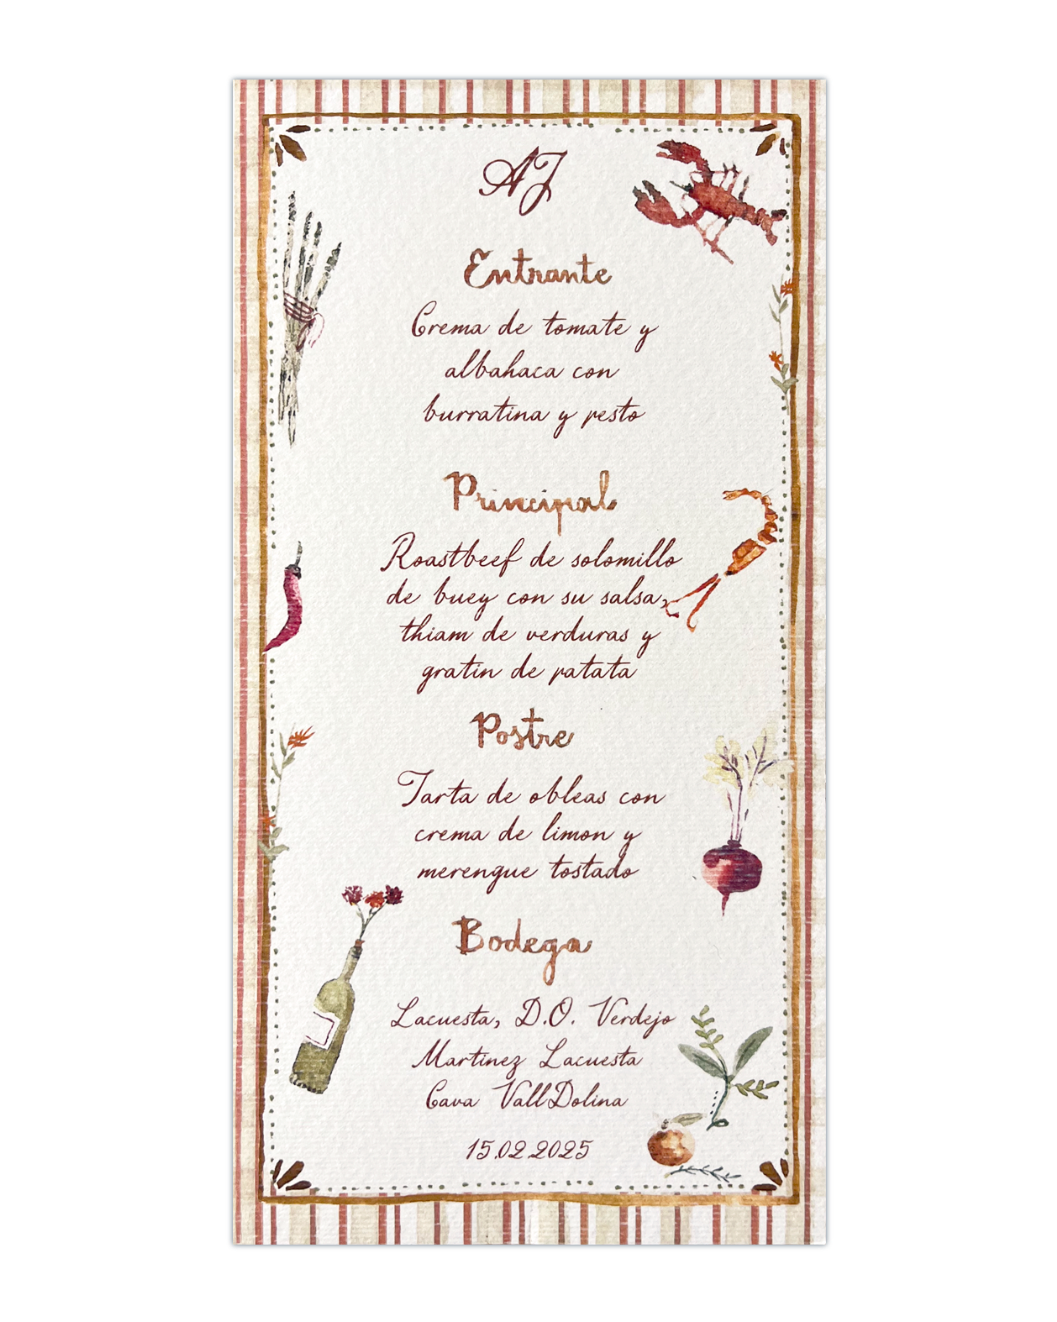 AJ
Entrante
Crema de tomate y
albahaca con
burratina y pesto
Principal
Roastbeef de solomillo
de buey con su salsa,
thiam de verduras y
gratin de patata
Postre
Tarta de obleas con
crema de limon y
merengue tostado
Bodega
Lacuesta, D.O. Verdejo
Martinez Lacuesta
Cava VallDolina
15.02.2025